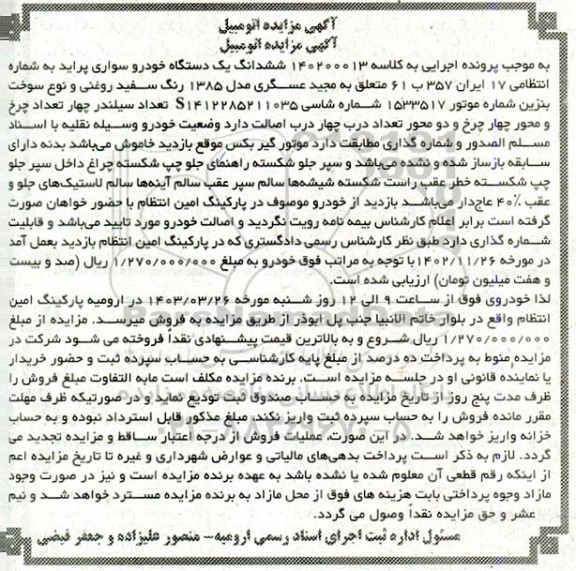 آگهی مزایده اتومبیل
آگهی مزایده اتومبیل
به موجب پرونده اجرایی به کلاسه ۱۴۰۲۰۰۰۱۳ ششدانگ یک دستگاه خودرو سواری پراید به شماره
انتظامی ۱۷ ایران ۳۵۷ ب ۶۱ متعلق به مجید عسگری مدل ۱۳۸۵ رنگ سفید روغنی و نوع سوخت
بنزین شماره موتور ۱۵۳۳۵۱۷ شماره شاسی S۱۴۱۲۲۸۵۲۱۱۰۳۵ تعداد سیلندر چهار تعداد چرخ
و محور چهار چرخ و دو محور تعداد درب چهار درب اصالت دارد وضعیت خودرو وسیله نقلیه با اسناد
مسلم الصدور و شماره گذاری مطابقت دارد موتور گیر بکس موقع بازدید خاموش می‌باشد بدنه دارای
سابقه بازساز شده و نشده می‌باشد و سپر جلو شکسته راهنمای جلو چپ شکسته چراغ داخل سپر جلو
چپ شکسته خطر عقب راست شکسته شیشه‌ها سالم سپر عقب سالم آینه‌ها سالم لاستیک‌های جلو و
عقب ۴۰٪ عاج‌دار می‌باشد بازدید از خودرو موصوف در پارکینگ امین انتظام با حضور خواهان صورت
گرفته است برابر اعلام کارشناس بیمه نامه رویت نگردید و اصالت خودرو مورد تأیید می‌باشد و قابلیت
شماره گذاری دارد طبق نظر کارشناس رسمی دادگستری که در پارکینگ امین انتظام بازدید بعمل آمد
در مورخه ۱۴۰۲/۱۱/۲۶ با توجه به مراتب فوق خودرو به مبلغ ۱/۲۷۰/۰۰۰/۰۰۰ ریال (صد و بیست
و هفت میلیون تومان) ارزیابی شده است.
لذا خودروی فوق از ساعت ۹ الی ۱۲ روز شنبه مورخه ۱۴۰۳/۰۳/۲۶ در ارومیه پارکینگ امین
انتظام واقع در بلوار خاتم الانبیا جنب پل ابوذر از طریق مزایده به فروش میرسد. مزایده از مبلغ
۱/۲۷۰/۰۰۰/۰۰۰ ریال شروع و به بالاترین قیمت پیشنهادی نقداً فروخته می شود شرکت در
مزایده منوط به پرداخت ده درصد از مبلغ پایه کارشناسی به حساب سپرده ثبت و حضور خریدار
یا نماینده قانونی او در جلسه مزایده است. برنده مزایده مکلف است مابه التفاوت مبلغ فروش را
ظرف مدت پنج روز از تاریخ مزایده به حساب صندوق ثبت تودیع نماید و در صورتیکه ظرف مهلت
مقرر مانده فروش را به حساب سپرده ثبت واریز نکند، مبلغ مذکور قابل استرداد نبوده و به حساب
خزانه واریز خواهد شد. در این صورت، عملیات فروش از درجه اعتبار ساقط و مزایده تجدید می
گردد. لازم به ذکر است پرداخت بدهی‌های مالیاتی و عوارض شهرداری و غیره تا تاریخ مزایده اعم
از اینکه رقم قطعی آن معلوم شده یا نشده باشد به عهده برنده مزایده است و نیز در صورت وجود
مازاد وجوه پرداختی بابت هزینه های فوق از محل مازاد به برنده مزایده مسترد خواهد شد و نیم
عشر و حق مزایده نقداً وصول می گردد.
مسئول اداره ثبت اجرای اسناد رسمی ارومیه- منصور علیزاده و جعفر قبضی